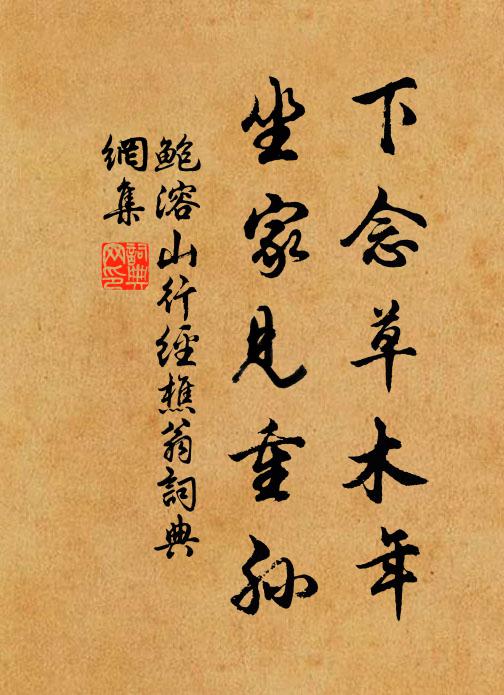 下念草木年
坐家見重孫
鮑溶山行經樵翁詞典
網集
詞典
网印